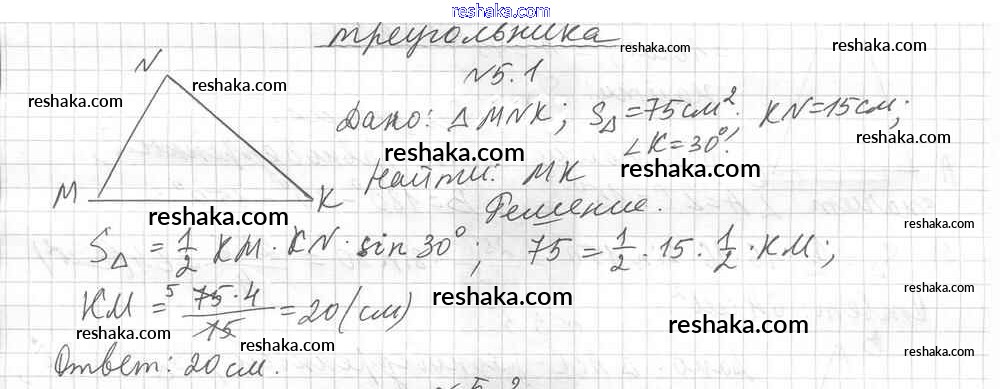 reshaka.com
треугольника
reshaka.com
reshaka.com
№5.1
N
reshaka.com
reshaka.com
Дано: △ MNK; S△ = 75см². KN = 15см;
reshaka.com
∠K = 30°.
reshaka.com
reshaka.com
Найти: MK
M
K
reshaka.com
Решение.
reshaka.com
S△ = 1/2 KM · KN · sin 30°; 75 = 1/2 · 15 · 1/2 · KM;
KM = 5 75 · 4 / 15 = 20 (см)
reshaka.com
reshaka.com
reshaka.com
reshaka.com
reshaka.com
Ответ: 20 см.
reshaka.com